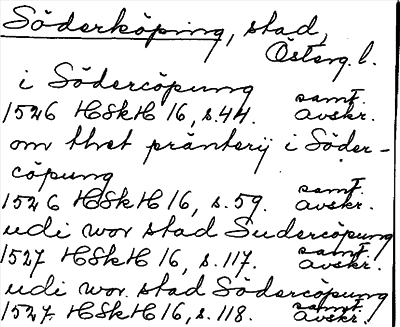 Söderköping, stad,
Österg. l.
i Södercöpung
1526 HSkH 16, s. 44. samt. avskr.
om thet präntery i Söder-
cöpung
1526 HSkH 16, s. 59. samt. avskr.
udi wor stad Sudercöpung
1527 HSkH 16, s. 117. samt. avskr.
udi wor stad Södercöpung
1527 HSkH 16, s. 118. samt. avskr.